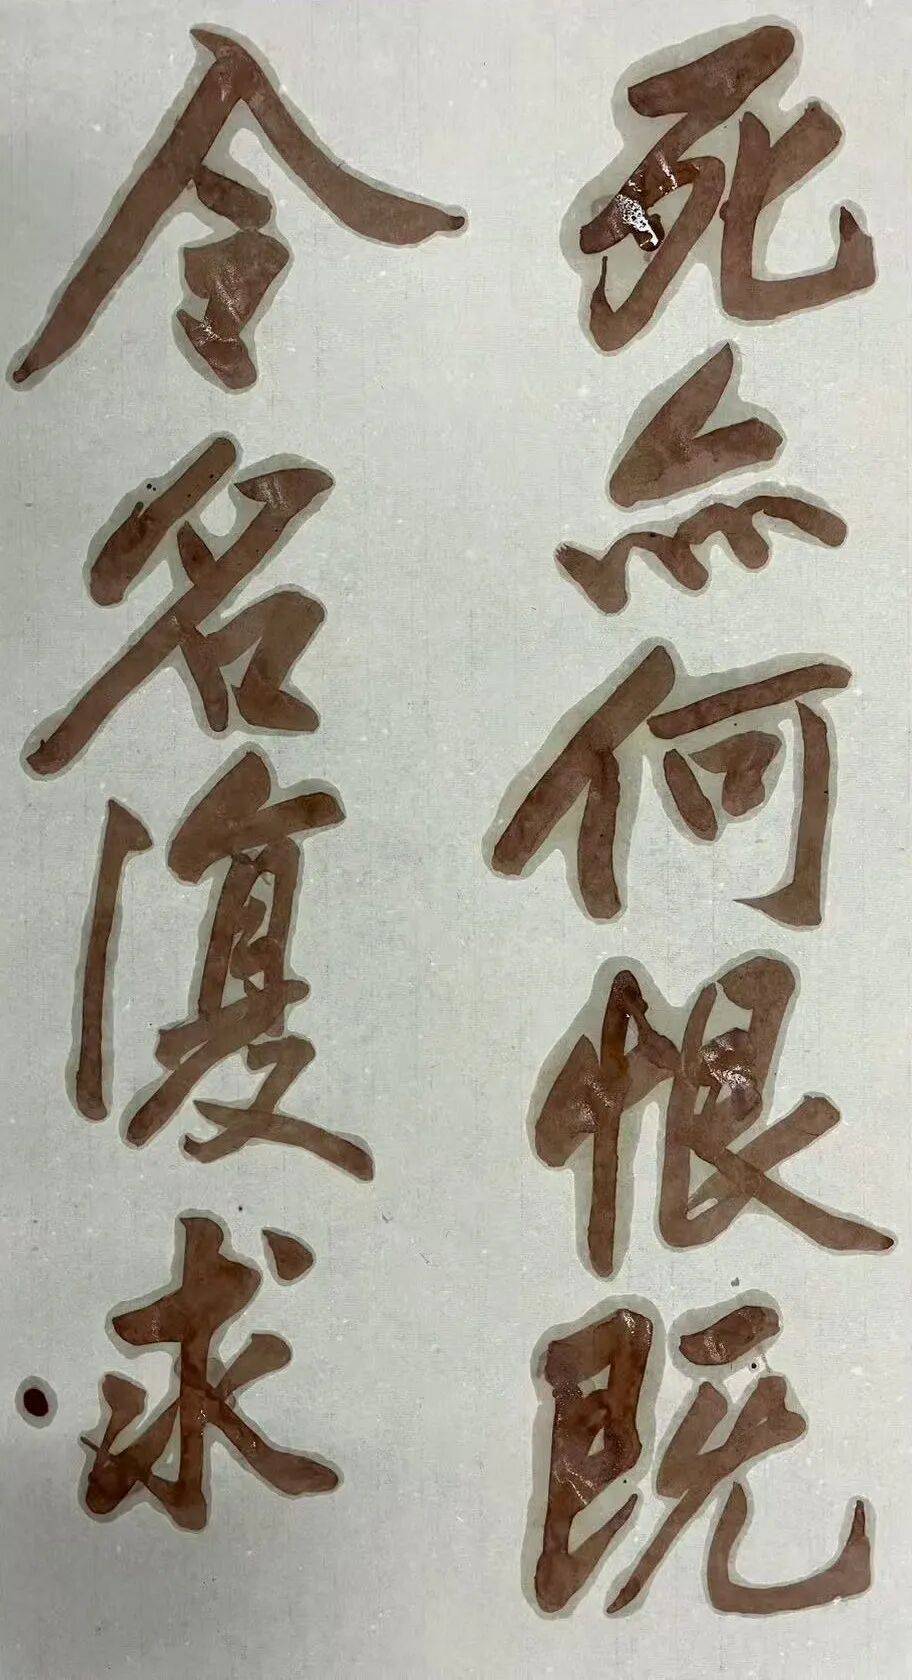 死無何恨既
令名復求